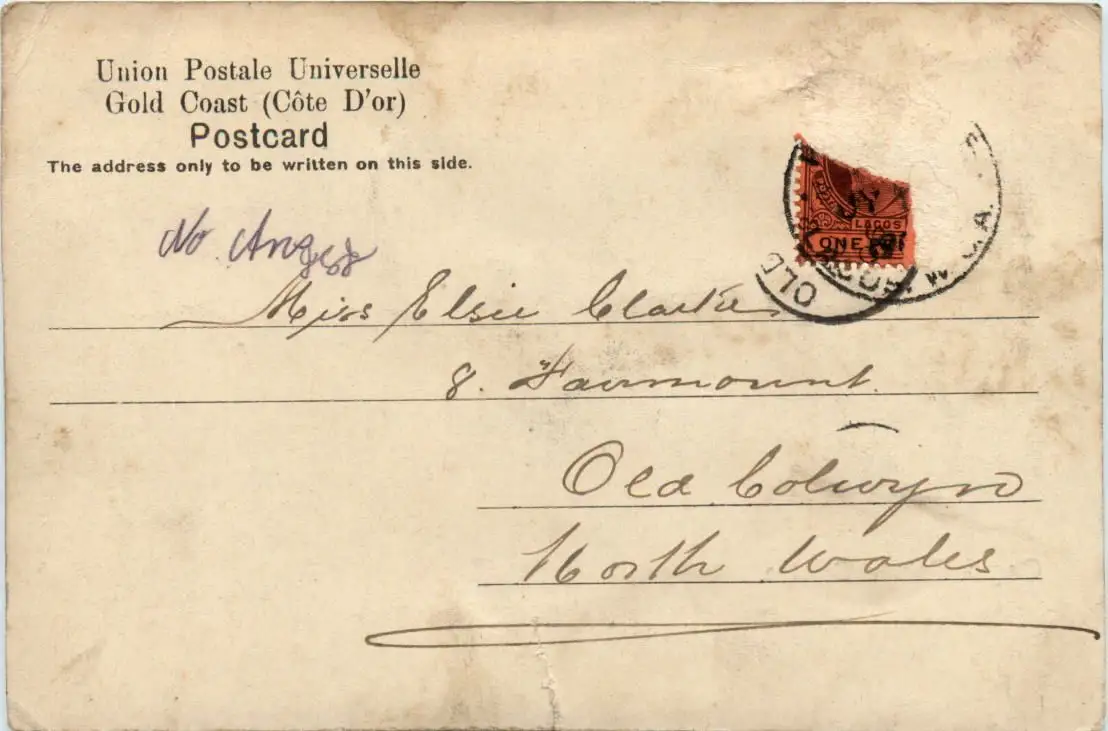 Union Postale Universelle
Gold Coast (Côte D'or)
Postcard
The address only to be written on this side.
LAGOS
ONE
JY
LAGOS. W.C.A.
OLD
No
Miss Elsie Clarke
8. Fairmount.
Old Colwyn
North Wales